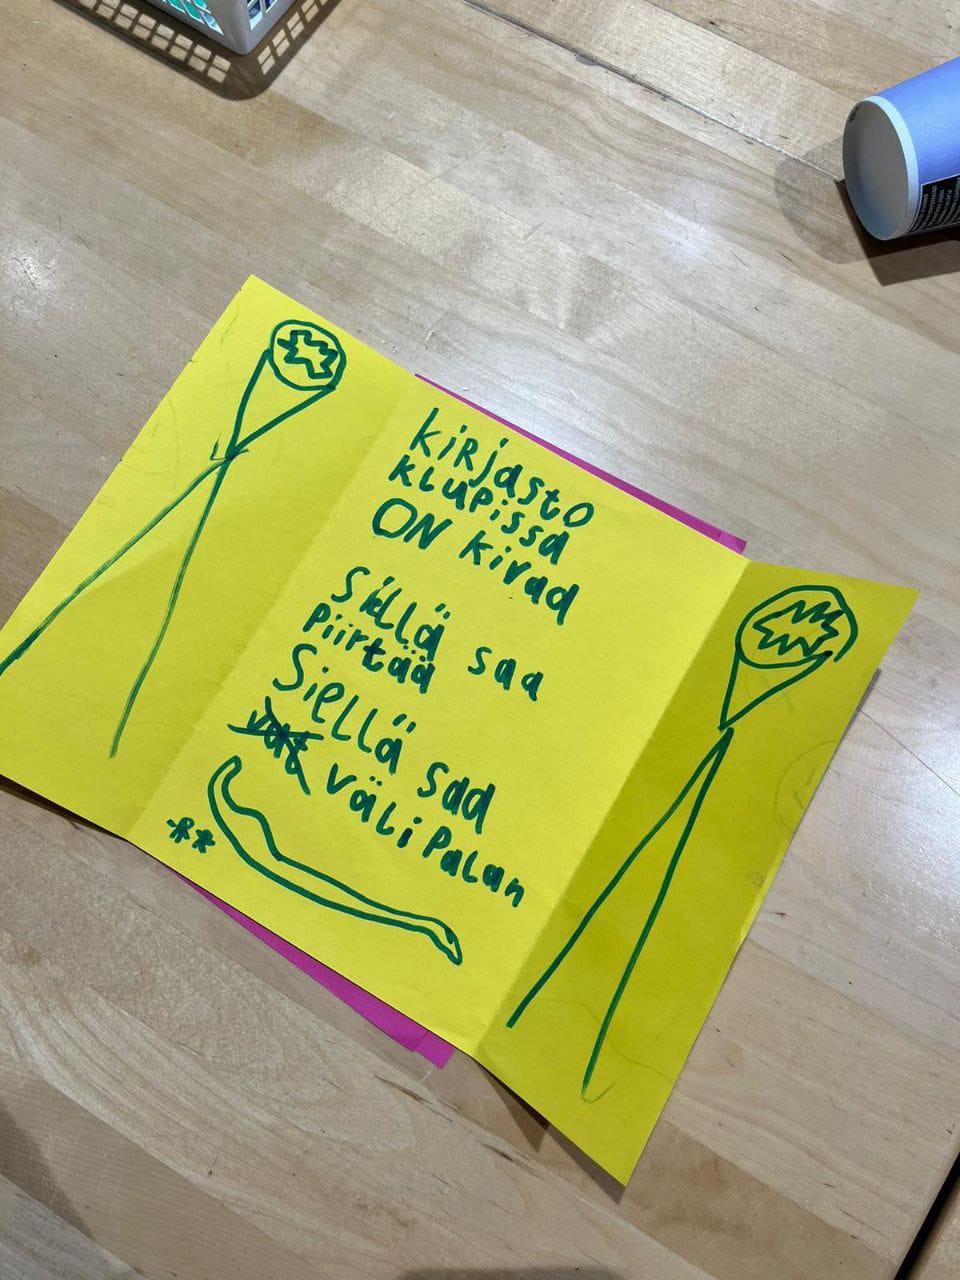 kirjasto
klupissa
ON kivad
Siellä saa
piirtää
Siellä saa
väli palan